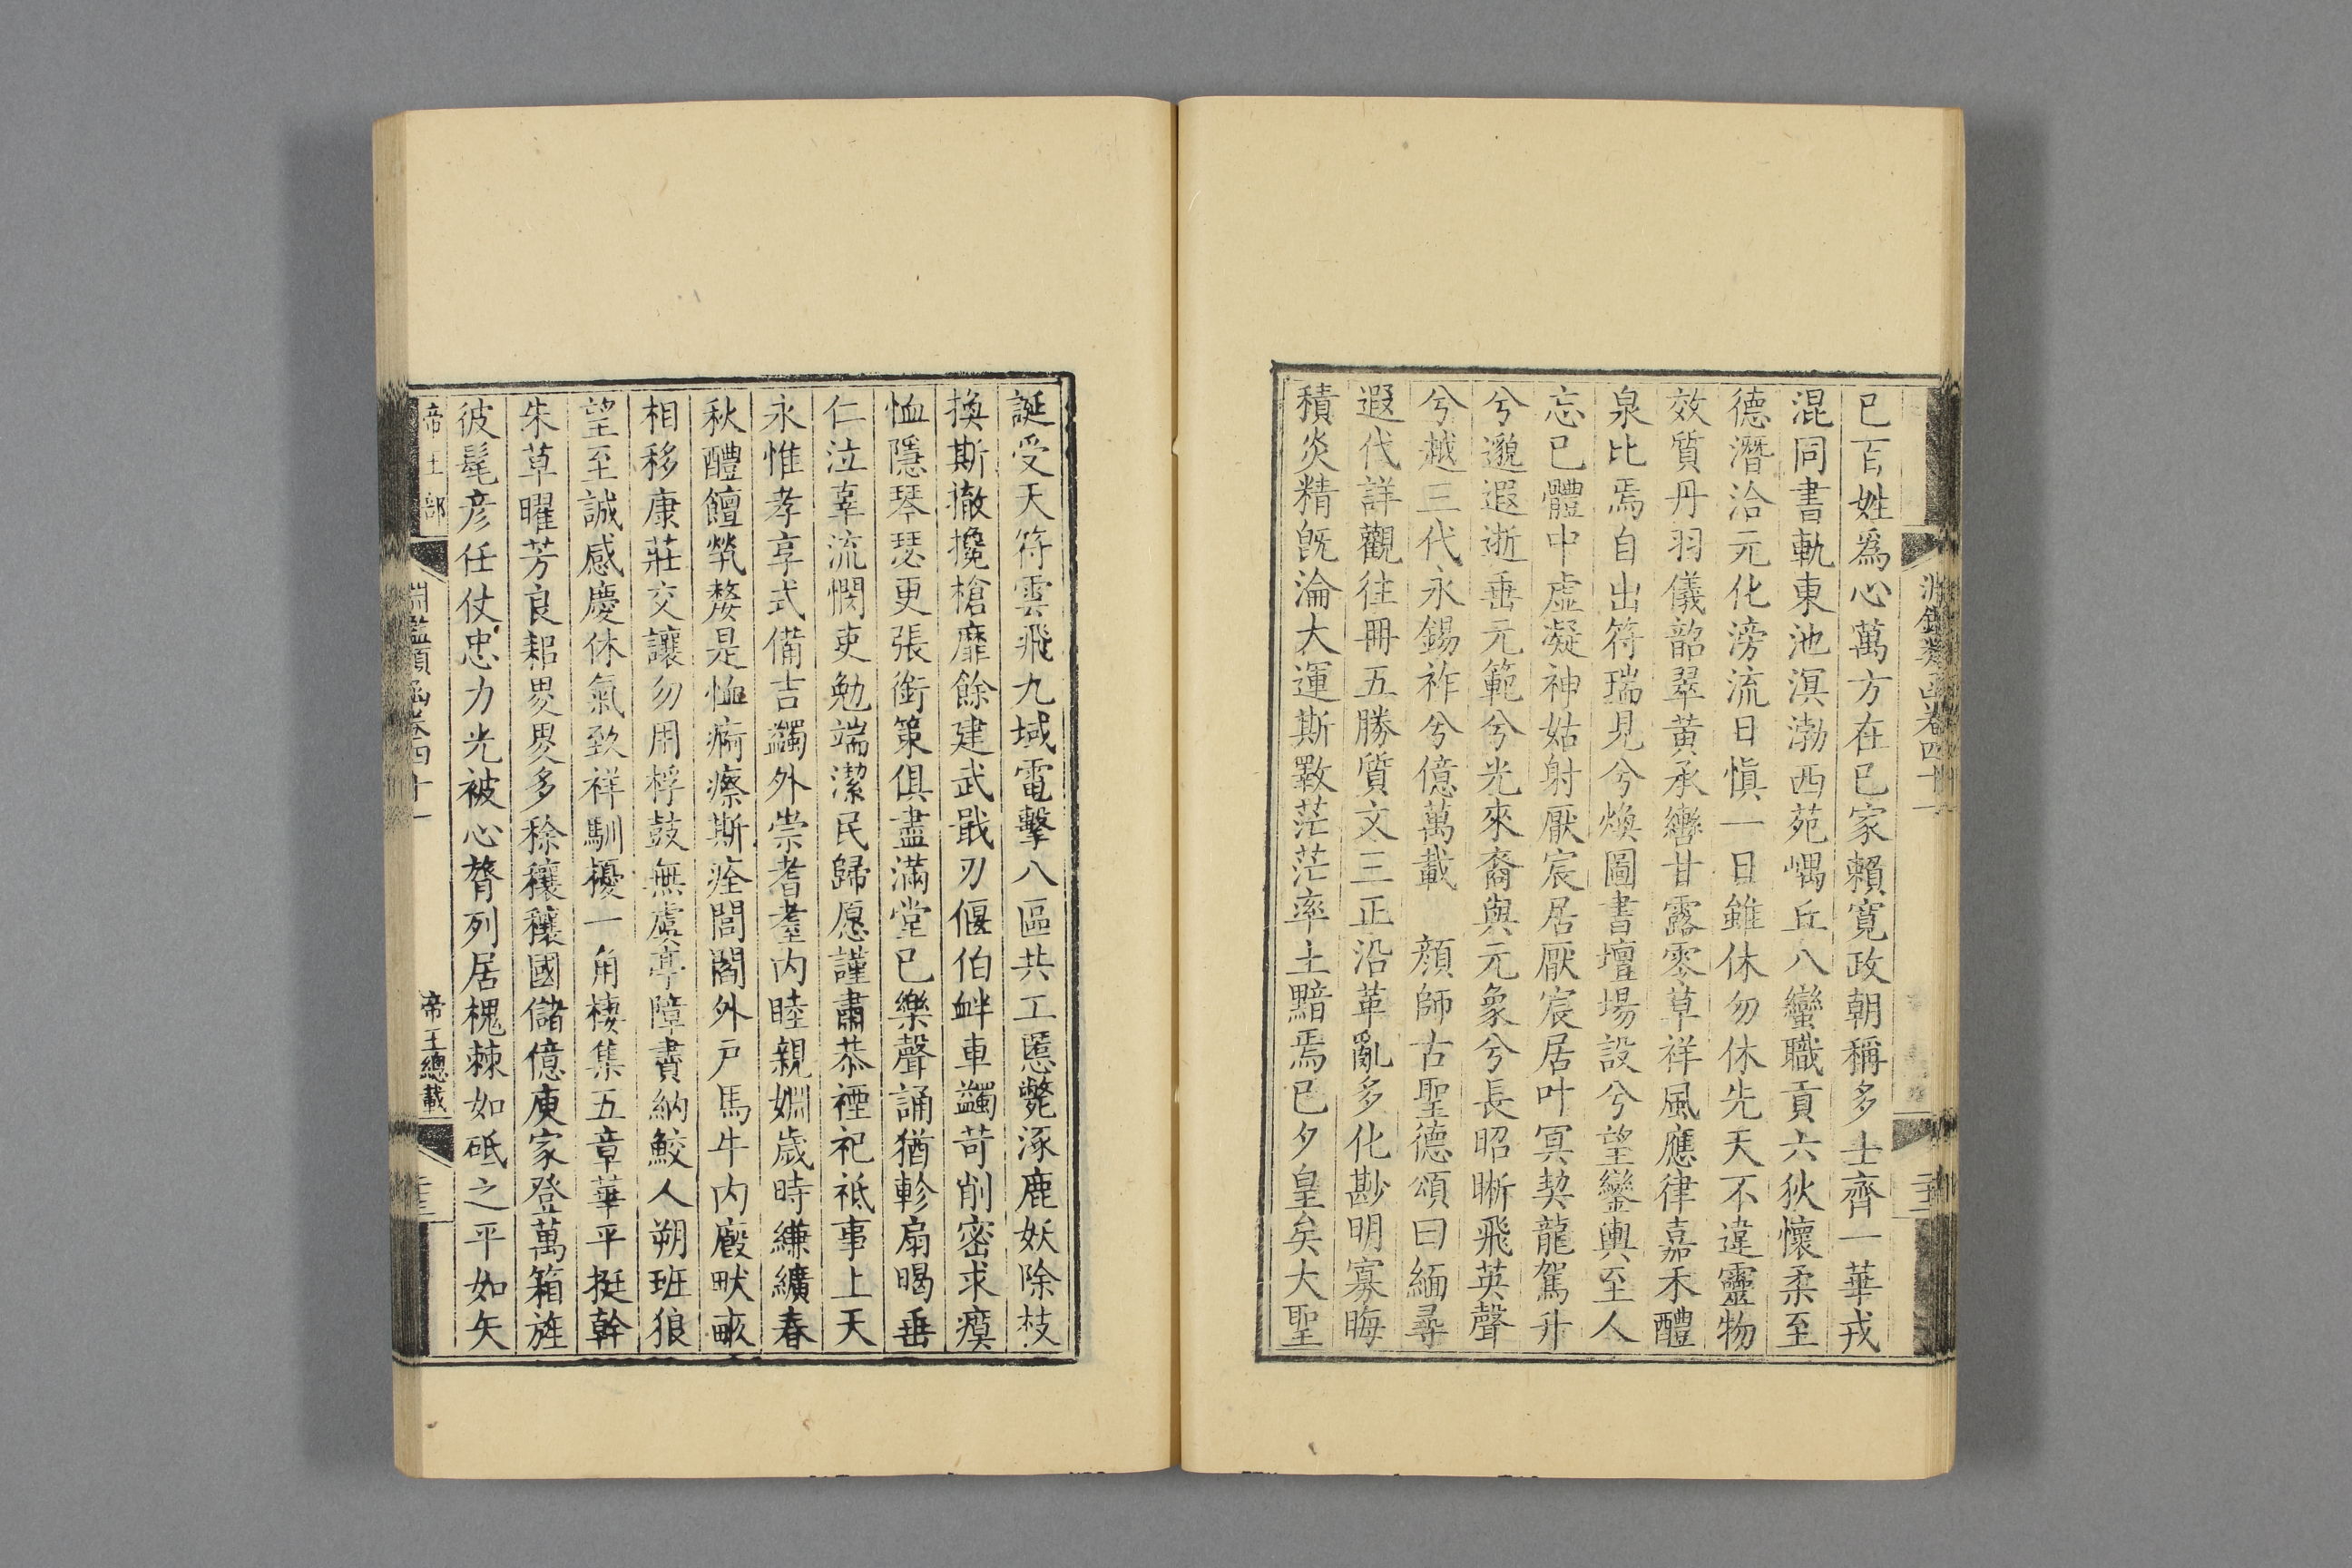 已百姓爲心萬方在已家賴寬政朝稱多士齊一華戎
混同書軌東池溟渤西苑嵎丘八蠻職貢六狄懷柔至
德潛洽元化滂流日愼一日雖休勿休先天不違靈物
效質丹羽儀韶翠黄承轡甘露零草祥風應律嘉禾醴
泉比焉自出符瑞見兮煥圖書壇場設兮望鑾輿至人
忘已體中虛凝神姑射厭宸居厭宸居叶冥契龍駕升
兮邈遐逝垂元範兮光來裔與元象兮長昭晰飛英聲
兮越三代永錫祚兮億萬載　顔師古聖德頌曰緬尋
遐代詳觀往冊五勝質文三正沿革亂多化尠明寡晦
積炎精旣淪大運斯斁茫茫率土黯焉已夕皇矣大聖
誕受天符雲飛九域電擊八區共工慝斃涿鹿妖除枝
換斯撤攙槍靡餘建武戢刃偃伯衅車蠲苛削密求瘼
恤隱琴瑟更張銜策俱盡滿堂已樂聲誦猶軫扇暍垂
仁泣辜流憫吏勉端潔民歸愿謹肅恭禋祀祗事上天
永惟孝享式備吉蠲外崇耆耋内睦親婣歲時縑纊春
秋醴饘煢嫠是恤癠瘵斯痊閭閻外戸馬牛内廄畎畝
相移康莊交讓勿用桴鼓無虞亭障賮納鮫人朔班狼
望至誠感慶休氣致祥馴擾一角棲集五章華平挺幹
朱草曜芳良耜畟畟多稌穰穰國儲億庾家登萬箱旌
彼髦彦任仗忠力光被心膂列居槐棘如砥之平如矢
帝王部
淵鑑類函卷四十一
帝王總載